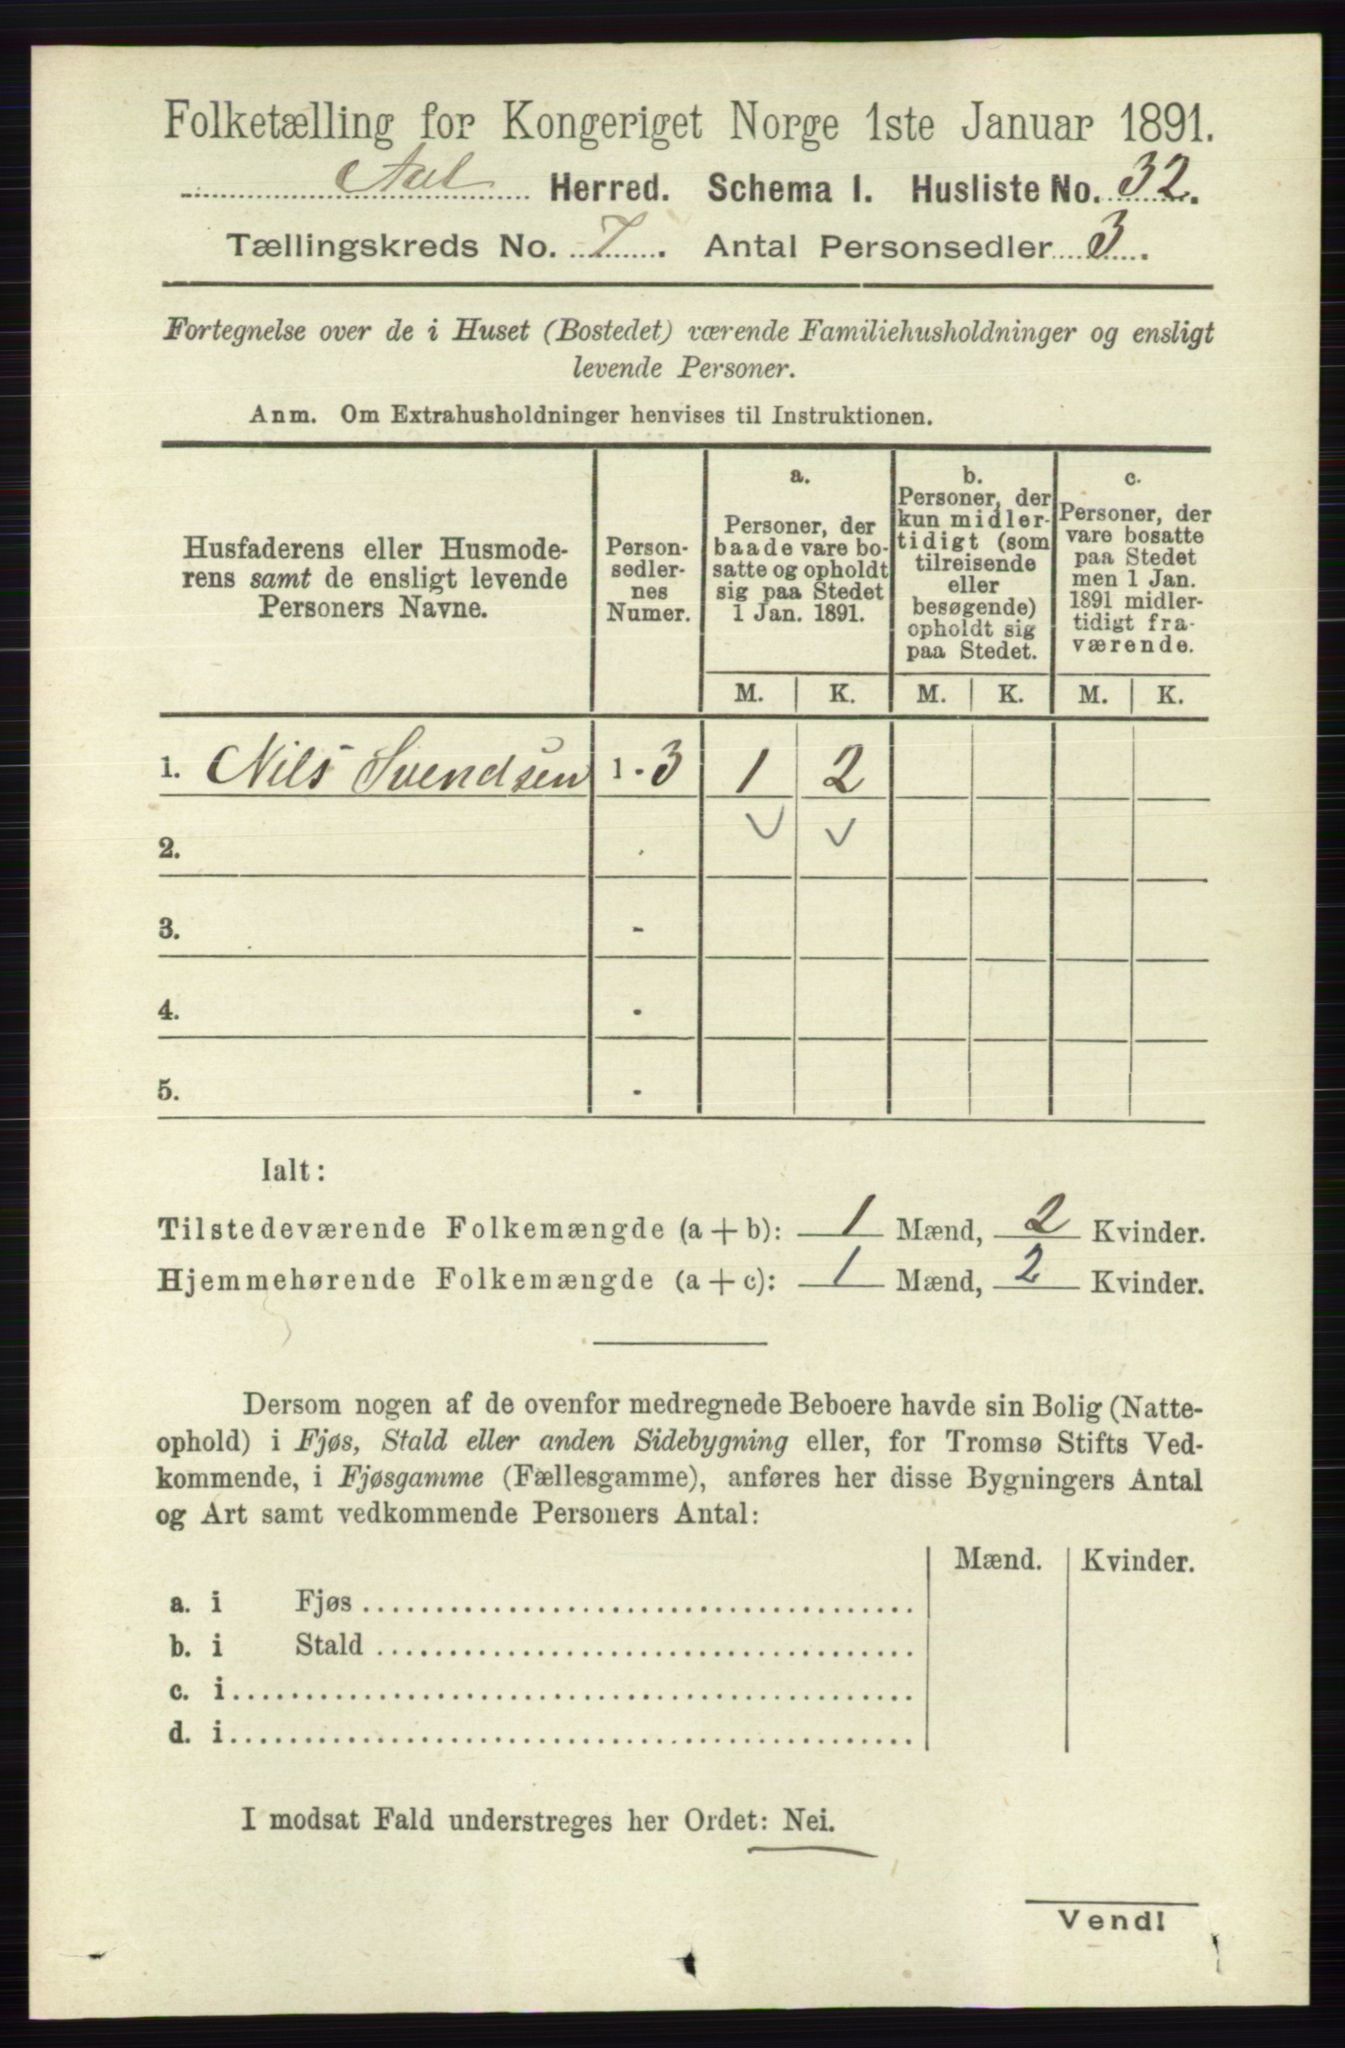 Folketælling for Kongeriget Norge 1ste Januar 1891.
Aal Herred. Schema I. Husliste No. 32.
Tællingskreds No. 7. Antal Personsedler 3.
Fortegnelse over de i Huset (Bostedet) værende Familiehusholdninger og ensligt
levende Personer.
Anm. Om Extrahusholdninger henvises til Instruktionen.
Husfaderens eller Husmode-
rens samt de ensligt levende
Personers Navne.
Person-
sedler-
nes
Numer.
a.
Personer, der
baade vare bo-
satte og opholdt
sig paa Stedet
1 Jan. 1891.
b.
Personer, der
kun midler-
tidigt (som
tilreisende
eller
besøgende)
opholdt sig
paa Stedet.
c.
Personer, der
vare bosatte
paa Stedet
men 1 Jan.
1891 midler-
tidigt fra-
værende.
M. K. M. K. M. K.
1. Nils Svendsen 1 - 3 1 2
2.
3. -
4. -
5. -
Ialt:
Tilstedeværende Folkemængde (a + b): 1 Mænd, 2 Kvinder.
Hjemmehørende Folkemængde (a + c): 1 Mænd, 2 Kvinder.
Dersom nogen af de ovenfor medregnede Beboere havde sin Bolig (Natte-
ophold) i Fjøs, Stald eller anden Sidebygning eller, for Tromsø Stifts Ved-
kommende, i Fjøsgamme (Fællesgamme), anføres her disse Bygningers Antal
og Art samt vedkommende Personers Antal:
Mænd. Kvinder.
a. i Fjøs
b. i Stald
c. i
d. i
I modsat Fald understreges her Ordet: Nei.
Vend!